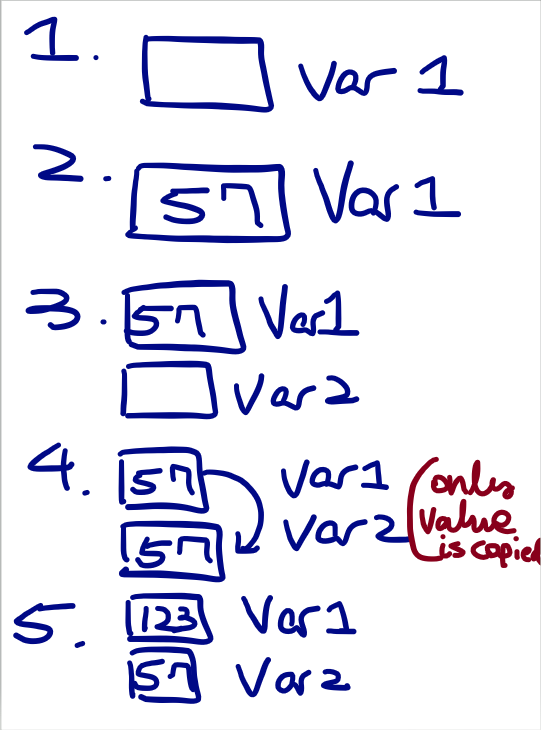 1. Var 1
2. 57 Var 1
3. 57 Var1
Var 2
4. 57 Var1
57 Var 2
(only
value
is copied
5. 123 Var 1
57 Var 2